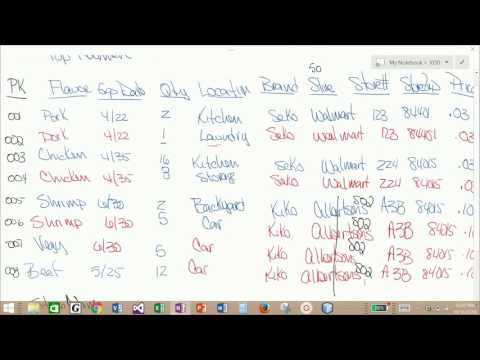 Top Ramen
My Notebook > 3050
50
PK Flavor Exp Date Qty Location Brand Store Store# StoreZip Price
001 Pork 4/22 2 Kitchen Seko Walmart 123 84401 .03
002 Pork 4/22 1 Laundry Seko Walmart 123 84401 .03
003 Chicken 4/35 16 Kitchen Seko Walmart 224 84015 .03
004 Chicken 4/35 8 Storage Seko Walmart 224 84015 .03
005 Shrimp 6/30 2 Backyard Kiko Albertsons 502 A3B 84015 .10
006 Shrimp 6/30 5 Car Kiko Albertsons 502 A3B 84015 .10
007 Vegy 6/30 5 Car Kiko Albertsons 502 A3B 84015 .10
008 Beef 5/25 12 Car Kiko Albertsons 502 A3B 84015 .10